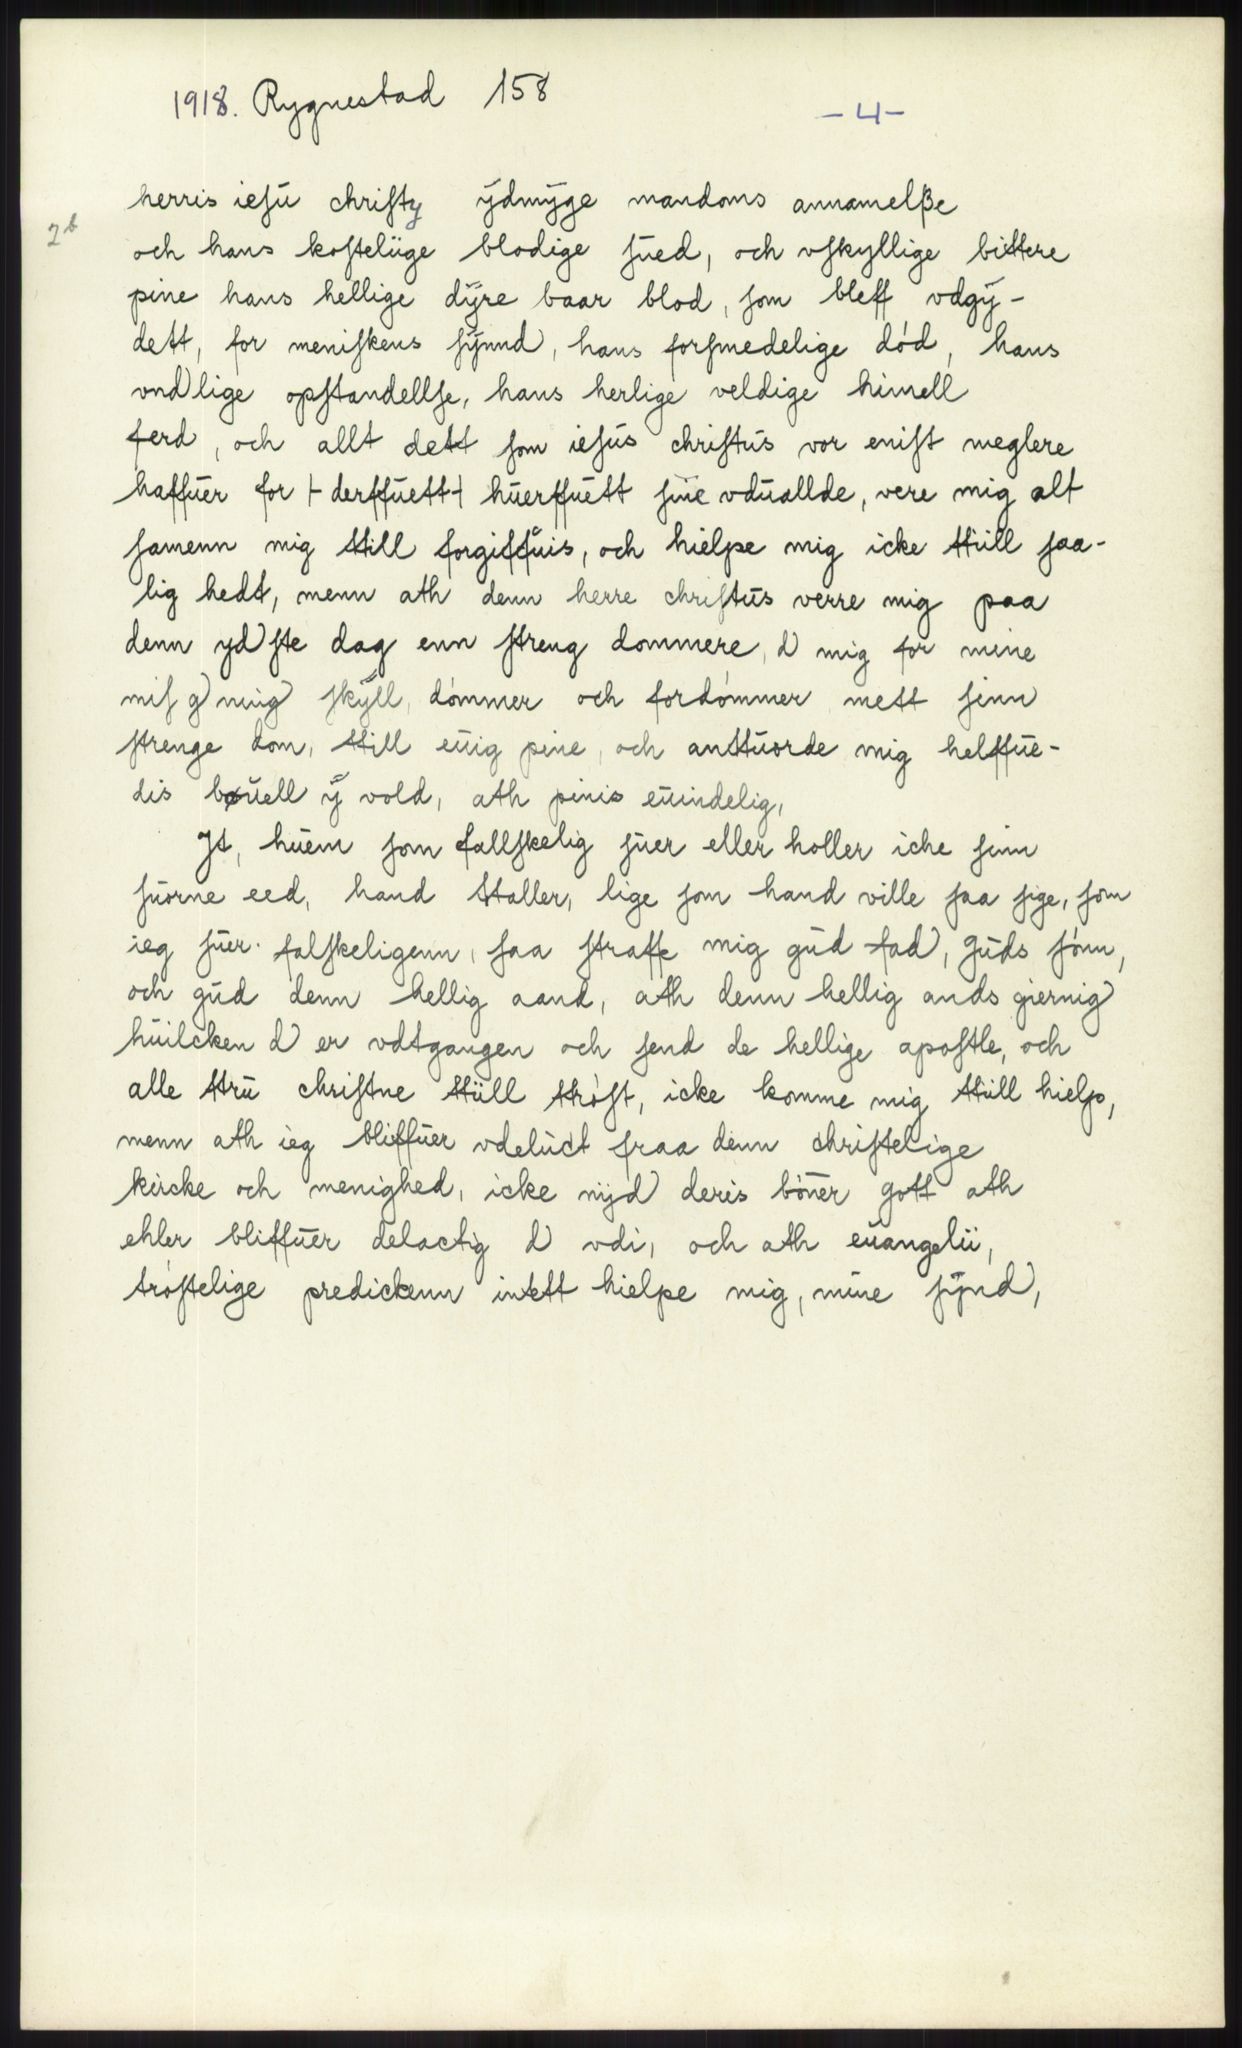 1918. Rygnestad 158
-4-
herris iesu christy ÿdmÿge mandoms annamelße
2b
och hans kosteliige blodige sued, och vskyllige bittere
pine hans hellige dÿre baar blod, som bleff vdgÿ-
dett, for meniskens sÿnnd, hans forsmedelige död, hans
vnd)lige opstandellse, hans herlige veldige himell
ferd, och allt dett som iesus christus vor enist meglere
haffuer for |- derffuett -| huerffuett siie vduallde, vere mig alt
samenn mig till forgiffuis, och hielpe mig icke tiill saa-
lig hedt, menn ath denn herre christus verre mig paa
denn yd)ste dag enn streng dommere, d mig for mine
mis g) ning) skÿll, dömmer och fordömmer mett sinn
strenge dom, till euig pine, och anttuorde mig helffue-
dis bøuell ÿ vold, ath pinis euindelig,
It, huem som fallskelig suer eller holler iche sinn
suorne eed, hand taller, lige som hand ville saa sige, som
ieg suer falskeligenn, saa straffe mig gud fad), guds sönn,
och gud denn hellig aand, ath denn hellig ands giernig)
huilcken d er vdtgangen och send de hellige apostle, och
alle tru christne tiill tröst, icke komme mig tiill hielp,
menn ath ieg bliffuer vdeluct fraa denn christelige
kircke och menighed, icke nÿd) deris böner gott ath
ehler bliffuer delactig d vdi, och ath euangelii,
tröstelige predickenn intett hielpe mig, mine sÿnd),